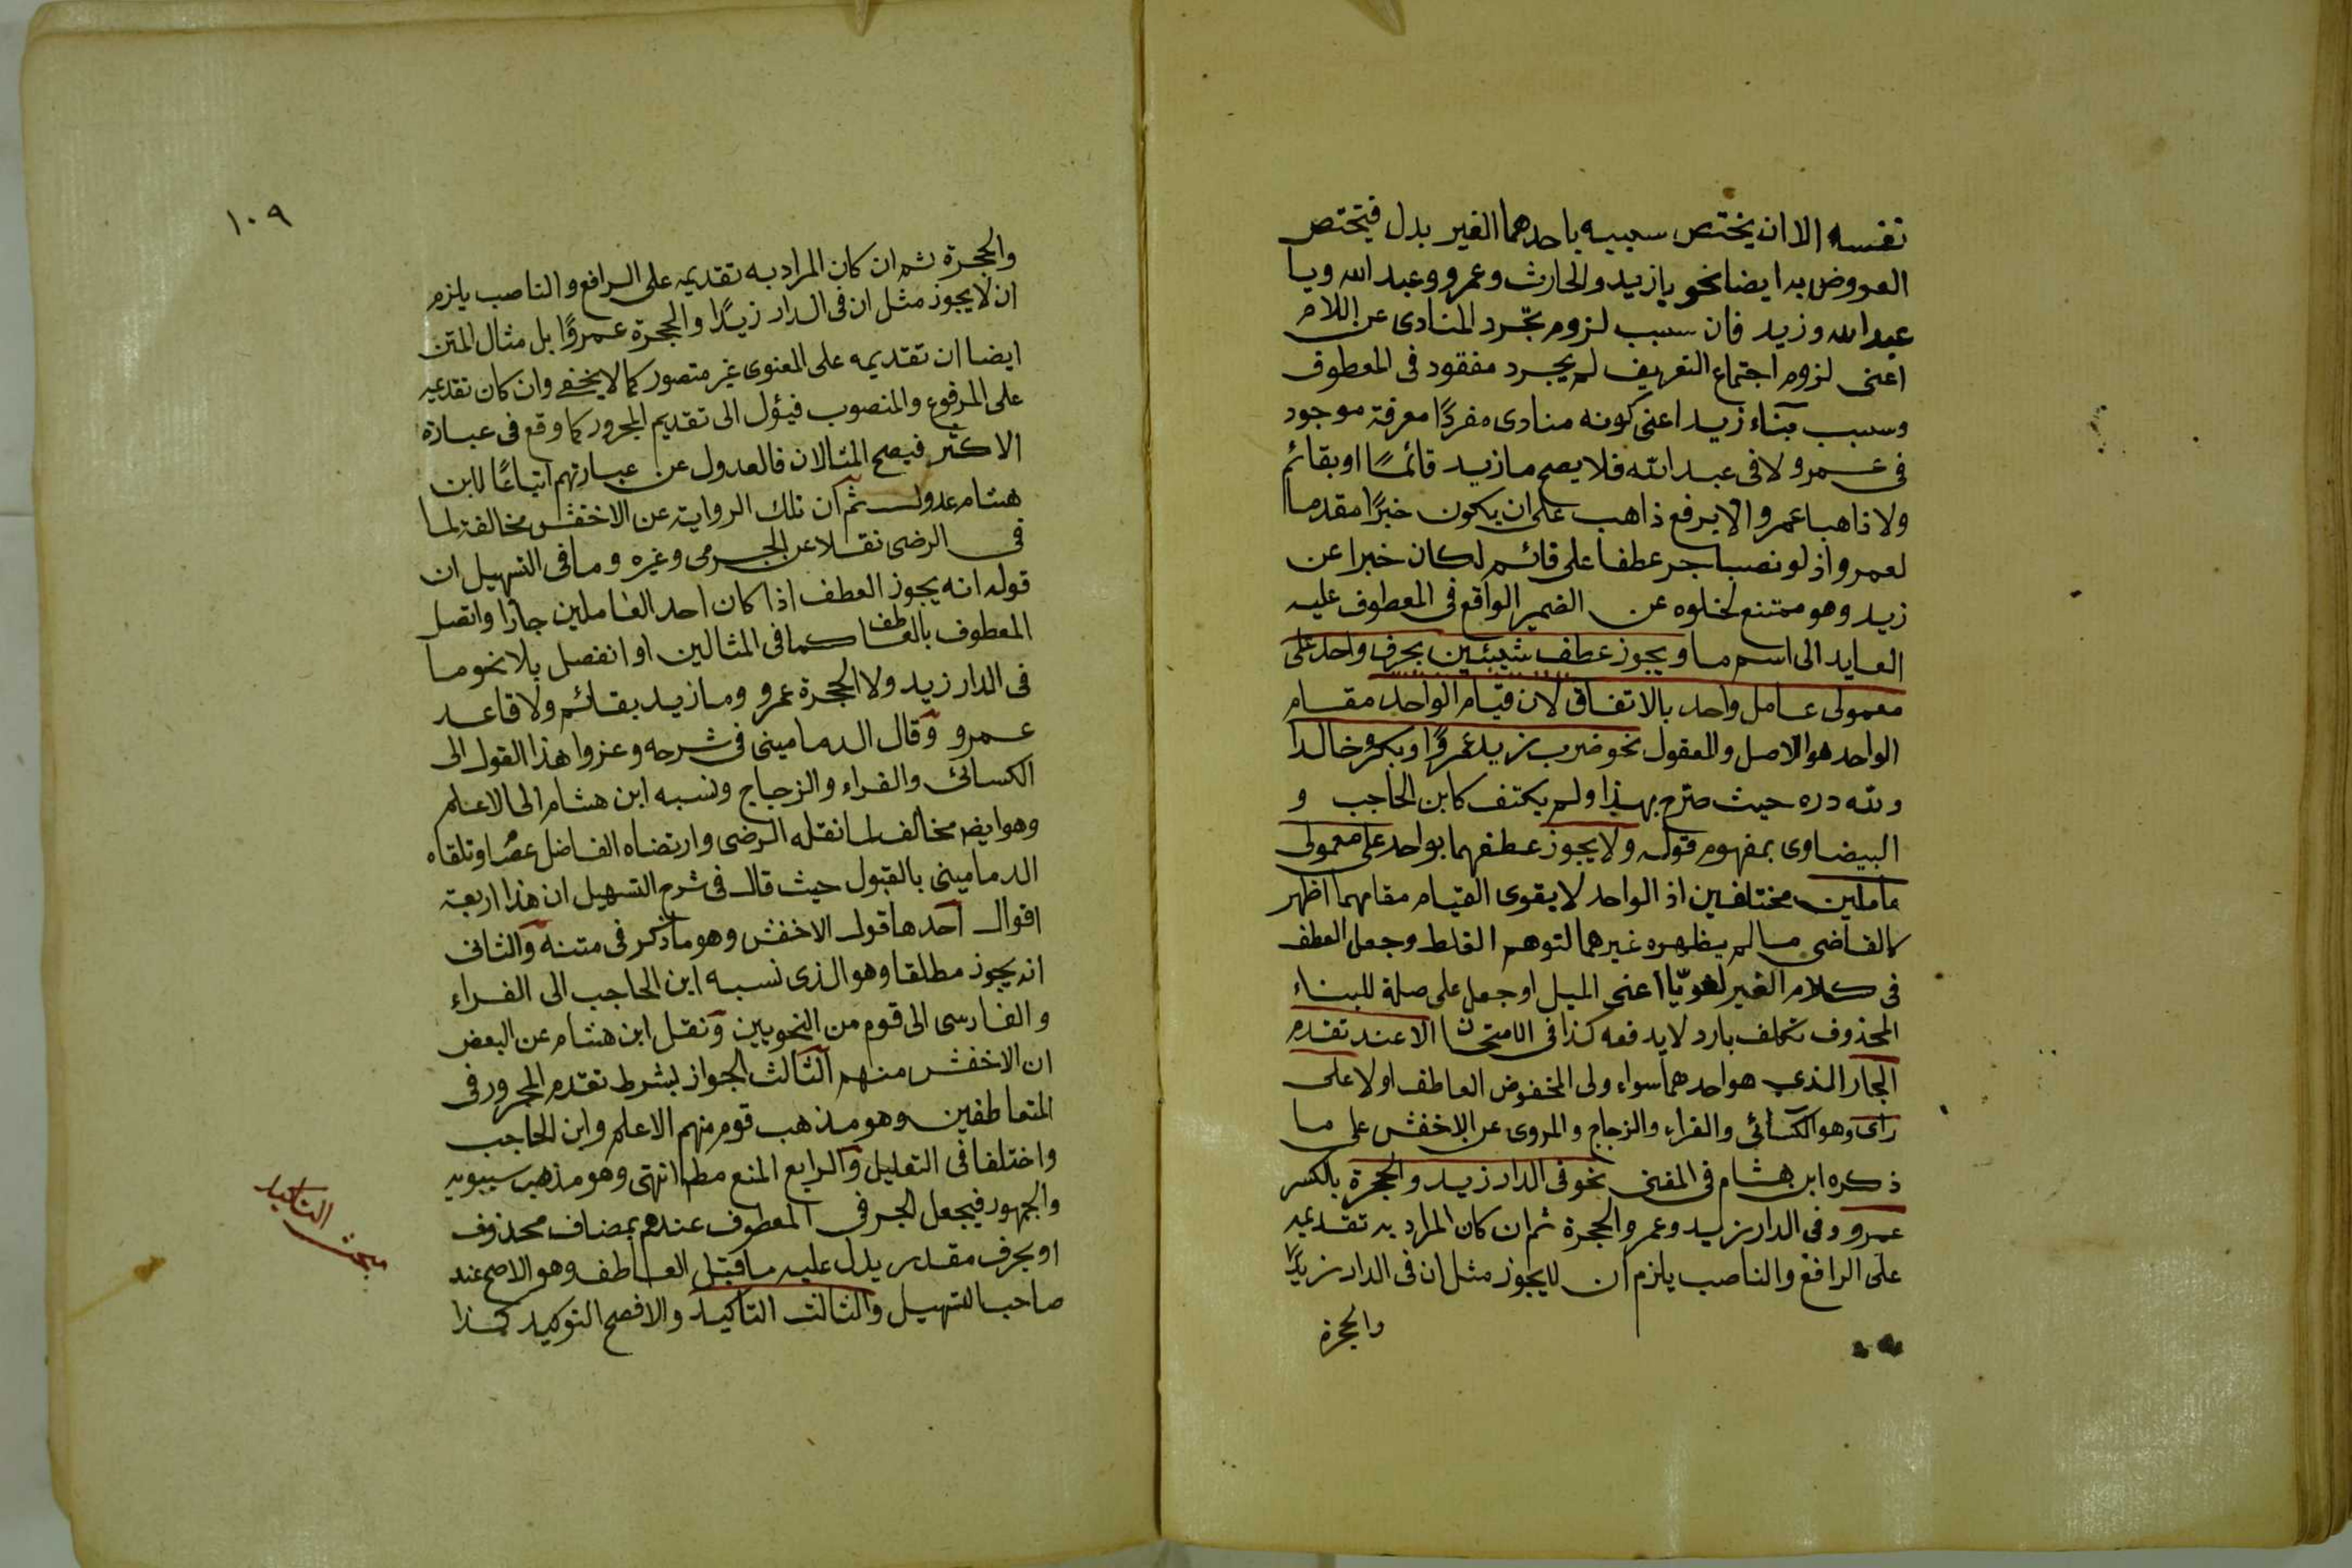 نفسه الا ان يختص سببيه باحدهما الغير بدل فيختص
العروض به ايضا نحو يا زيد والحارث وعمرو وعبد الله ويا
عبد الله وزيد فان سبب لزوم تجرد المنادى عن اللام
اعنى لزوم اجتماع التعريف لم يجرد مفقود فى المعطوف
وسبب بناء زيد اعنى كونه منادى مفردًا معرفة موجود
فى عمرو لا فى عبد الله فلا يصح ما زيد قائمًا او بقائم
ولا ذاهبا عمرو الا برفع ذاهب على ان يكون خبرًا مقدما
لعمرو اذ لو نصب او جر عطفا على قائم لكان خبرا عن
زيد وهو ممتنع لخلوه عن الضمير الواقع فى المعطوف عليه
العايد الى اسم ما ويجوز عطف شيئين بحرف واحد على
معمولى عامل واحد بالاتفاق لان قيام الواحد مقام
الواحد هو الاصل والمعقول نحو ضرب زيد عمرًوا وبكر خالدا
ولله دره حيث صرح بهذا ولم يكتف كابن الحاجب و
البيضاوى بمفهوم قوله ولا يجوز عطفهما بواحد على معمولى
عاملين مختلفين اذ الواحد لا يقوى القيام مقامهما اظهر
كالفاضى ما لم يظهره غيرهما لتوهم الغلط وجعل العطف
فى كلام الغير لغويّا اعنى الميل او جعل على صلة للبناء
المحذوف تكلف بارد لا يدفعه كذا فى الامتحان الا عند تقدم
الجار الذى هو احدهما سواء ولى المخفوض العاطف اولا على
راى وهو الكسائى والفراء والزجاج والمروى عن الاخفش على ما
ذكره ابن هشام فى المغنى نحو فى الدار زيد والحجرة بالكسر
عمرو وفى الدار زيد وعمرو الحجرة ثم ان كان المراد به تقديمه
على الرافع والناصب يلزم ان لا يجوز مثل ان فى الدار زيدًا
والحجرة
١٠٩
والحجرة ثم ان كان المراد به تقديمه على الرافع والناصب يلزم
ان لا يجوز مثل ان فى الدار زيدًا والحجرة عمروًا بل مثال المتن
ايضا ان تقديمه على المعنوى غير متصور كما لا يخفى وان كان تقديمه
على المرفوع والمنصوب فيؤل الى تقديم المجرور كما وقع فى عبارة
الاكثر فيصح المثالان فالعدول عن عبارتهم اتباعًا لابن
هشام عدول ثم ان تلك الرواية عن الاخفش مخالفة لما
فى الرضى نقلا عن الجرمى وغيره وما فى التسهيل ان
قوله انه يجوز العطف اذا كان احد العاملين جارا واتصل
المعطوف بالعاطف كما فى المثالين او انفصل بلا نحو ما
فى الدار زيد ولا الحجرة عمرو وما زيد بقائم ولا قاعد
عمرو وقال الدمامينى فى شرحه وعزوا هذا القول الى
الكسائى والفراء والزجاج ونسبه ابن هشام الى الاعلم
وهو ايض مخالف لما نقله الرضى وارتضاه الفاضل عصا وتلقاه
الدمامينى بالقبول حيث قال فى شرح التسهيل ان هذا اربعة
اقوال احدها قول الاخفش وهو ما ذكر فى متنه والثانى
انه يجوز مطلقا وهو الذى نسبه ابن الحاجب الى الفراء
والفارسى الى قوم من النحويين ونقل ابن هشام عن البعض
ان الاخفش منهم الثالث الجواز بشرط تقدم المجرور فى
المتعاطفين وهو مذهب قوم منهم الاعلم وابن الحاجب
واختلفا فى التعليل والرابع المنع مط انتهى وهو مذهب سيبويه
والجمهور فيجعل الجر فى المعطوف عندهم بمضاف محذوف
او بحرف مقدر يدل عليه ما قبل العاطف وهو الاصح عند
صاحب التسهيل والثالث التاكيد والافصح التوكيد كذا
مبحث التاكيد